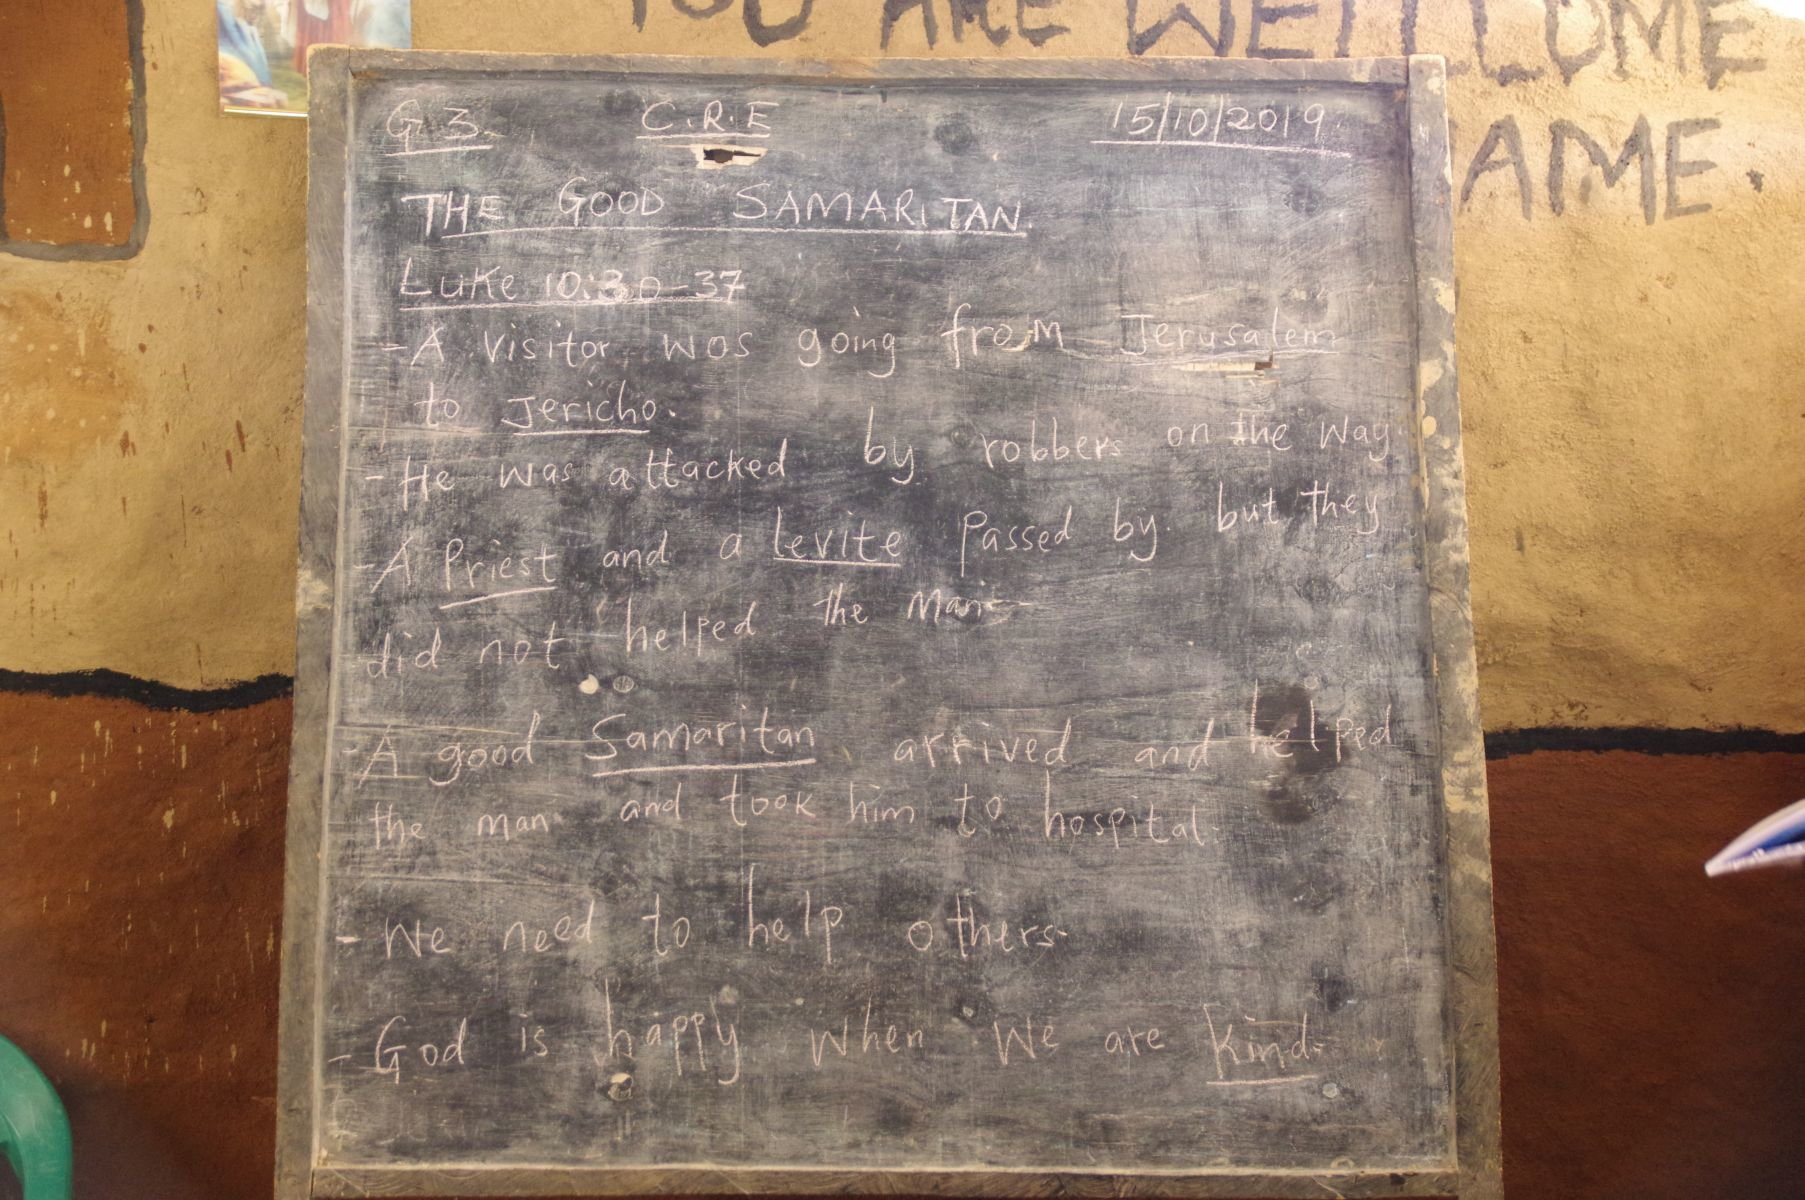 YOU ARE WELLCOME
AME.
G 3. C.R.E 15/10/2019.
THE GOOD SAMARITAN.
Luke 10:30-37
- A visitor was going from Jerusalem
to Jericho.
- He was attacked by robbers on the way.
- A Priest and a Levite passed by. but they
did not helped the man.
- A good Samaritan arrived and helped
the man and took him to hospital.
- We need to help others.
- God is happy when we are kind.